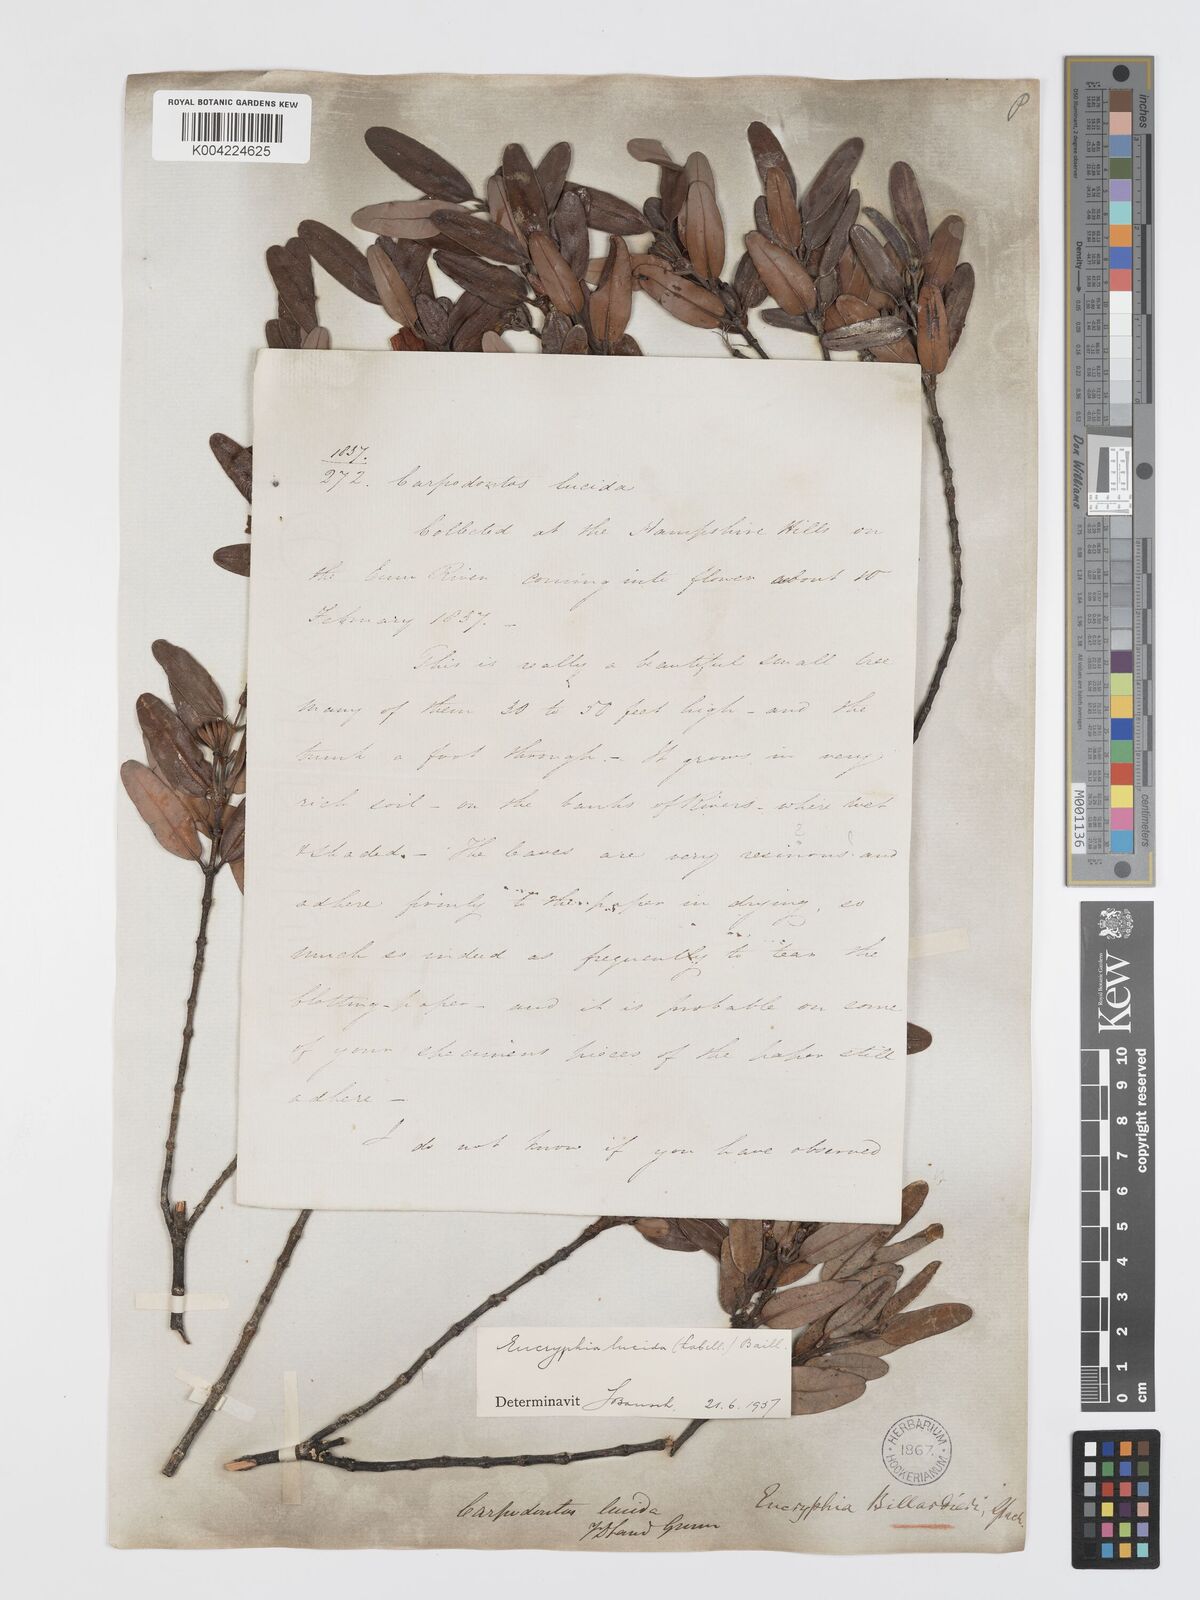 ROYAL BOTANIC GARDENS KEW
K004224625
P
1837.
272. Carpodontos lucida
Collected at the Hampshire Hills on
the Emu River coming into flower about 10
February 1837. –
This is really a beautiful small tree
many of them 30 to 50 feet high – and the
trunk a foot through. – It grows in very
rich soil – on the banks of Rivers – where wet
& shaded. – The leaves are very resinous and
adhere firmly to the paper in drying, so
much so indeed as frequently to tear the
blotting-paper – and it is probable on some
of your specimens pieces of the paper still
adhere –
I do not know if you have observed
Eucryphia lucida (Labill.) Baill.
Determinavit 21.6.1937
HERBARIUM
1867.
HOOKERIANUM
Carpodontos lucida
Gunn
Eucryphia Billardieri, Spach.
inches
centimetres
Don Williams
Density
M001136
Royal Botanic Gardens
Kew
copyright reserved
0 1 2 3 4 5 6 7 8 9 10
cm